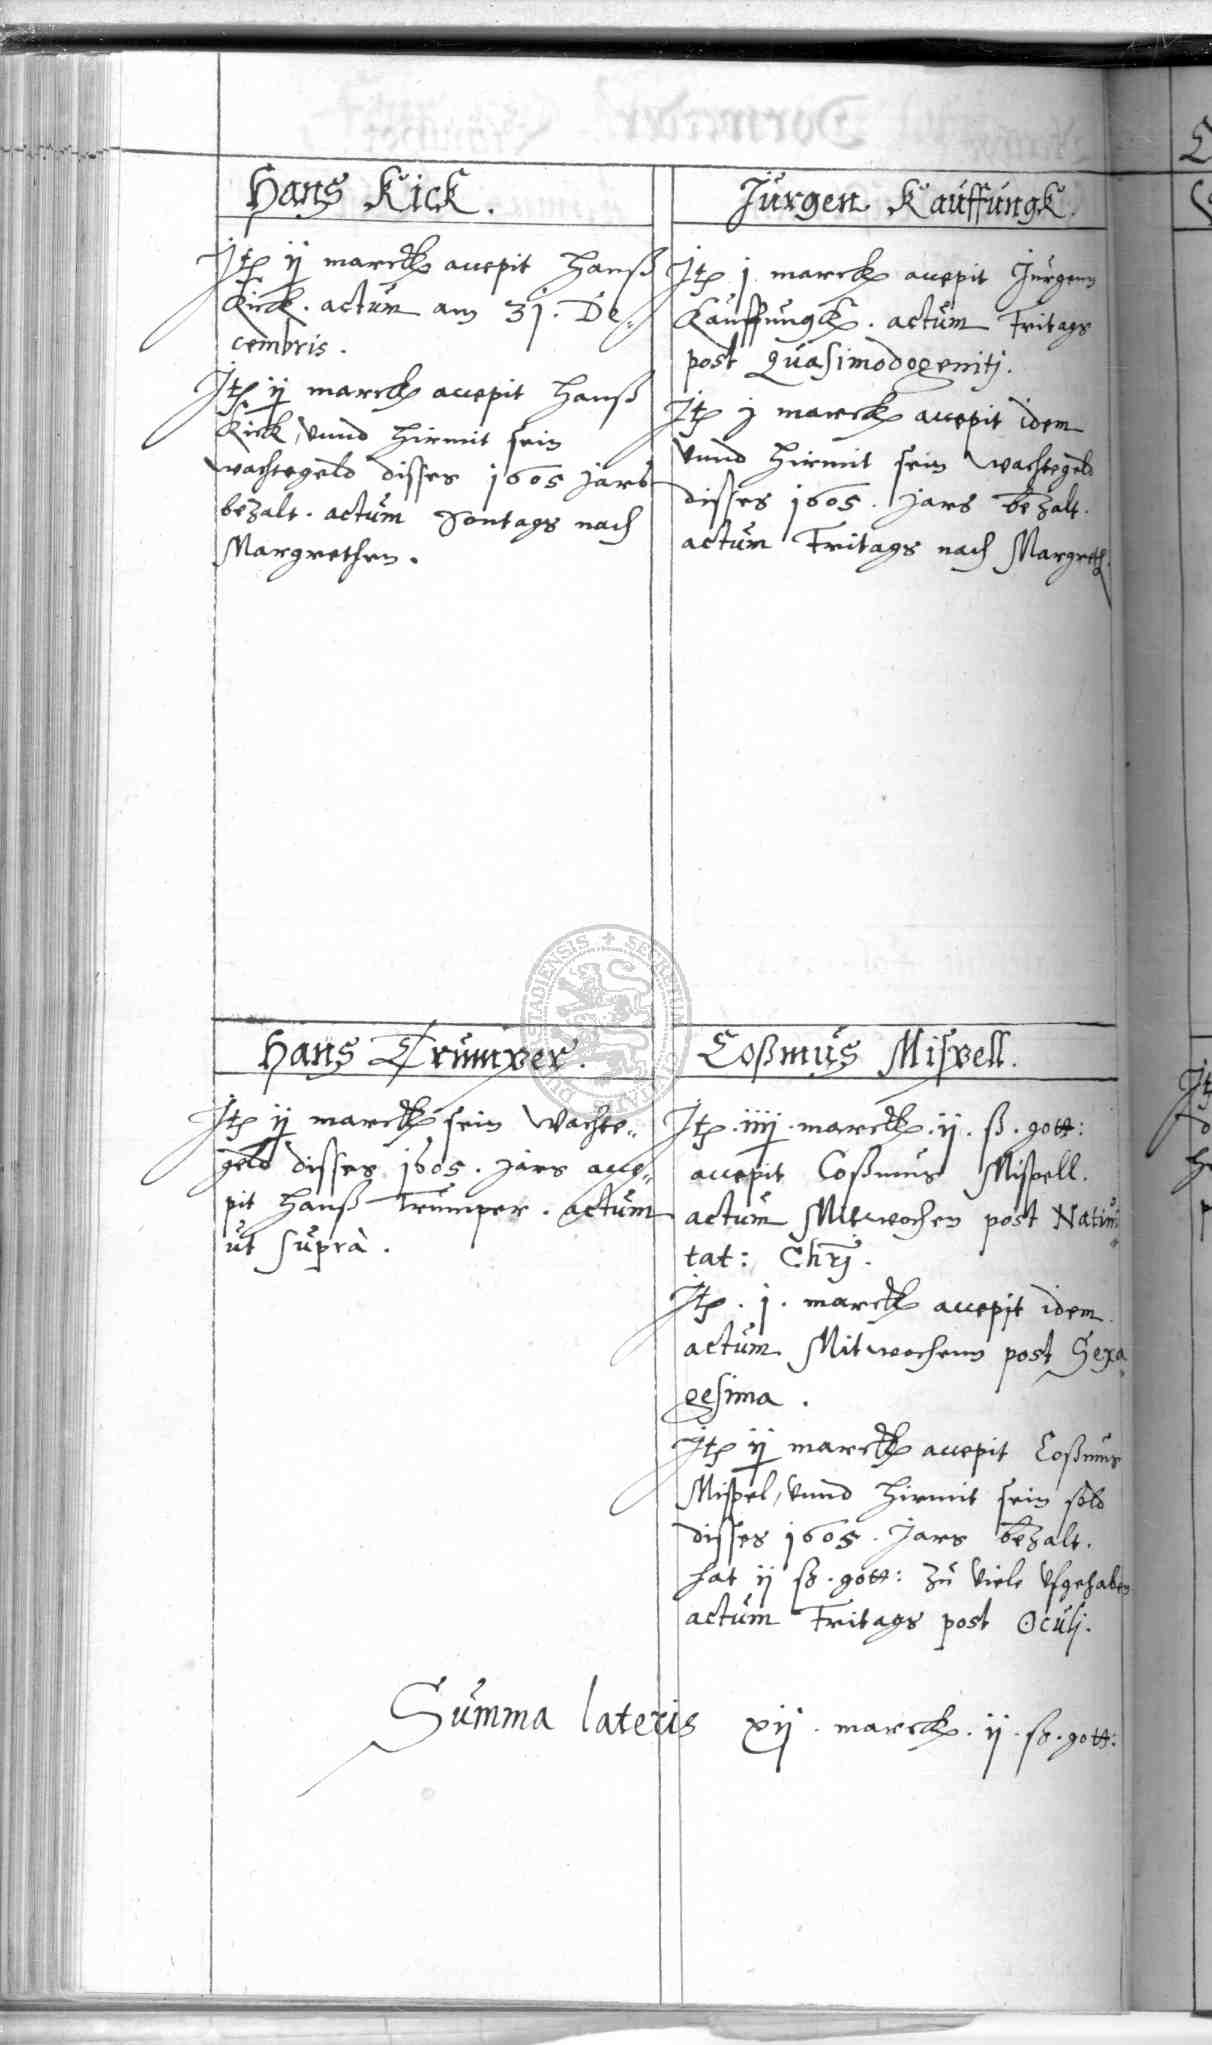 Hans Kick.
Jtẽ ij marck accepit Hanß
Kick. actum am 31. De„
cembris.
Jtẽ ij marck accepit Hanß
Kick, vnnd hirmit sein
wachtegeld disses 1605 jars
bezalt. actum Sontags nach
Margrethen.
Jürgen Kauffungk.
Jtẽ j marck accepit Jürgenn
Kauffungk. actum Fritags
post Quasimodogenitj.
Jtẽ j marck accepit idem
vnnd hirmit sein wachtegeld
disses 1605. jars bezalt.
actum Fritags nach Margreth.
Hans Trumper.
Jtẽ ij marck sein wachte„
geld disses 1605. jars acce„
pit Hanß Trumper. actum
ut suprà.
Coßmus Mispell.
Jtẽ .iiij. marck .ij. ß. gott:
accepit Coßmus Mispell.
actum Mitwochen post Natiui„
tat: Chrj.
Jtẽ . j . marck accepit idem
actum Mitwochenn post Sexa„
gesima .
Jtẽ ij marck accepit Coßmus
Mispel, vnnd hirmit sein sold
disses 1605. Jars bezalt.
hat ij ß. gott: zu viele vfgehaben
actum Fritags post Oculj.
Summa lateris xij . marck . ij . ß . gott:
SECRETUM CIVITATIS DUDERSTADIENSIS